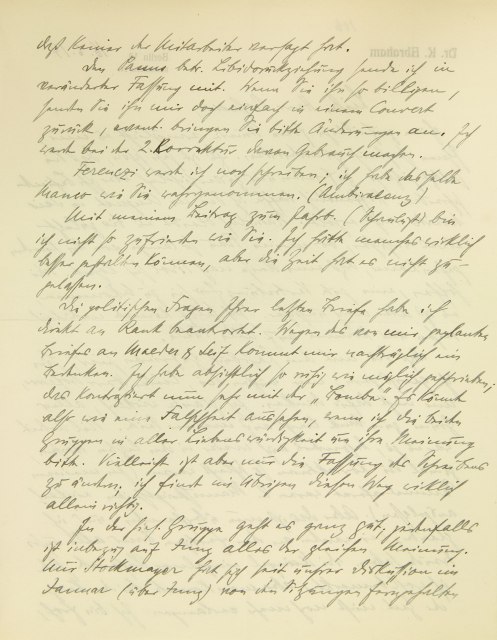 daß keiner der Mitarbeiter versagt hat.
Den Passus betr. Libidorückziehung sende ich in
veränderter Fassung mit. Wenn Sie ihn so billigen,
senden Sie ihn mir doch einfach in einem Couvert
zurück, event. bringen Sie bitte Änderungen an. Ich
werde bei der 2. Korrektur davon Gebrauch machen.
Ferenczi werde ich noch schreiben; ich habe dasselbe
Manco wie Sie wahrgenommen. (Ambivalenz)
Mit meinem Beitrag zum Jahrb. (Schaulust) bin
ich nicht so zufrieden wie Sie. Ich hätte manches wirklich
besser gestalten können, aber die Zeit hat es nicht zu-
gelassen.
Die politischen Fragen Ihres letzten Briefes habe ich
direkt an Rank beantwortet. Wegen des von mir geplanten
Briefes an Maeder & Seif kommt mir nachträglich ein
Bedenken. Ich habe absichtlich so ruhig wie möglich geschrieben;
das kontrastiert nun sehr mit der „Bombe". Es könnte
also wie eine Falschheit aussehen, wenn ich die beiden
Gruppen in aller Liebenswürdigkeit um ihre Meinung
bitte. Vielleicht ist aber nur die Fassung des Schreibens
zu ändern; ich finde im Übrigen diesen Weg wirklich
allein richtig.
In der hies. Gruppe geht es ganz gut, jedenfalls
ist inbezug auf Jung alles der gleichen Meinung.
Nur Stockmayer hat sich seit unsrer Diskussion im
Januar (über Jung) von den Sitzungen ferngehalten
Dr. K. Abraham